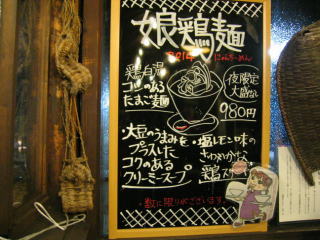 娘鶏麺
2014 にゃんちーめん
鶏白湯
コシのある
たまご麺
夜限定
大盛なし
980円
・大豆のうまみを
プラスした
コクのある
クリーミースープ
・塩レモン味の
さわやかな
鶏
・数に限りがございます。